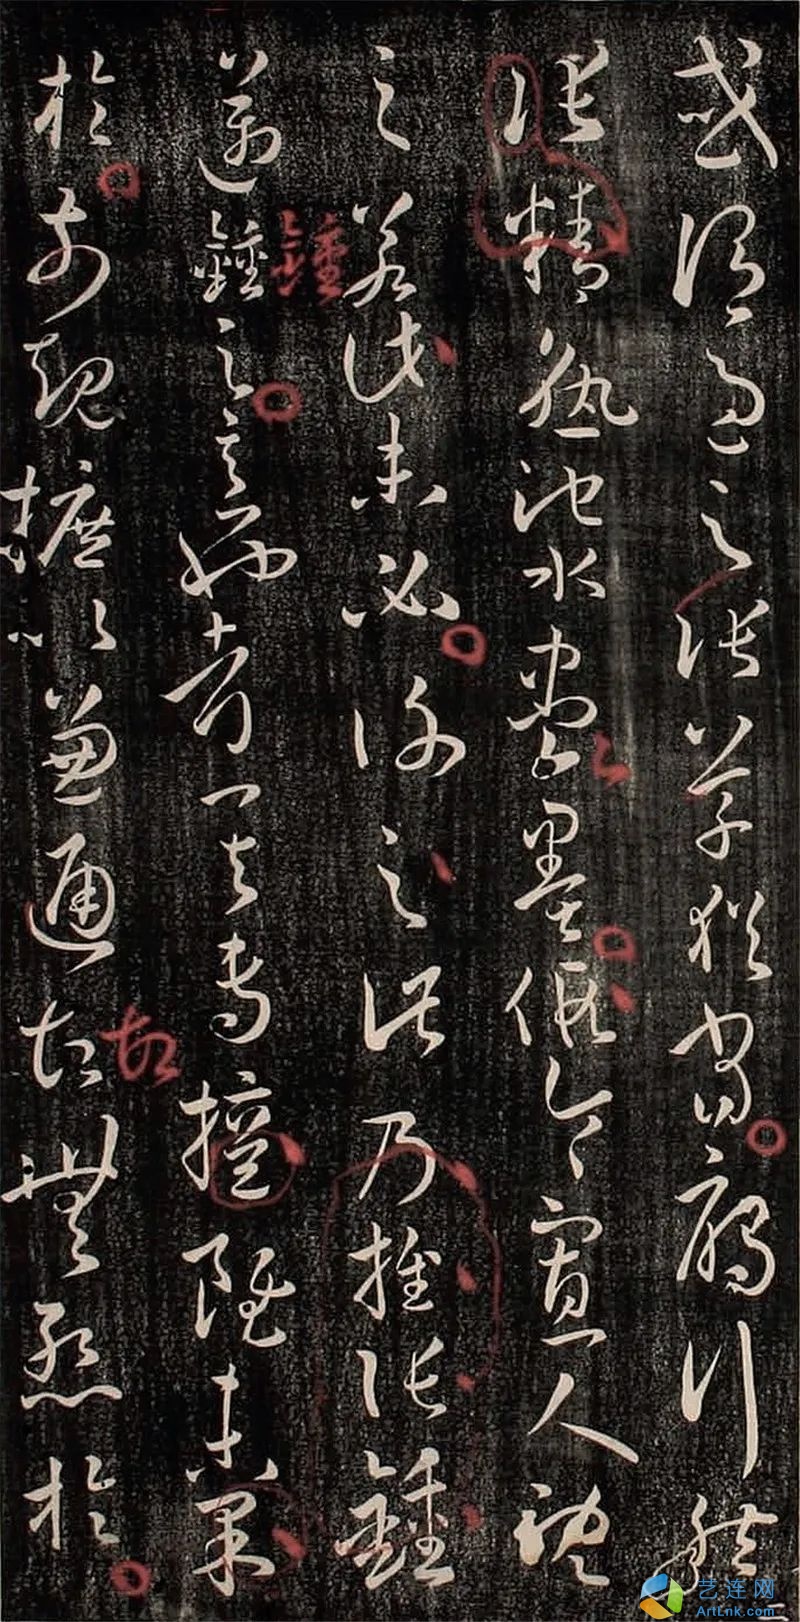 或謂過之張草猶當鴈行然
張精熟池水盡墨假令寡人耽
之若此未必謝之此乃推張鍾
鍾
邁鍾之意也考其專擅雖未果
故
於前規摭以兼通故無慙於
艺连网
ArtLnk.com